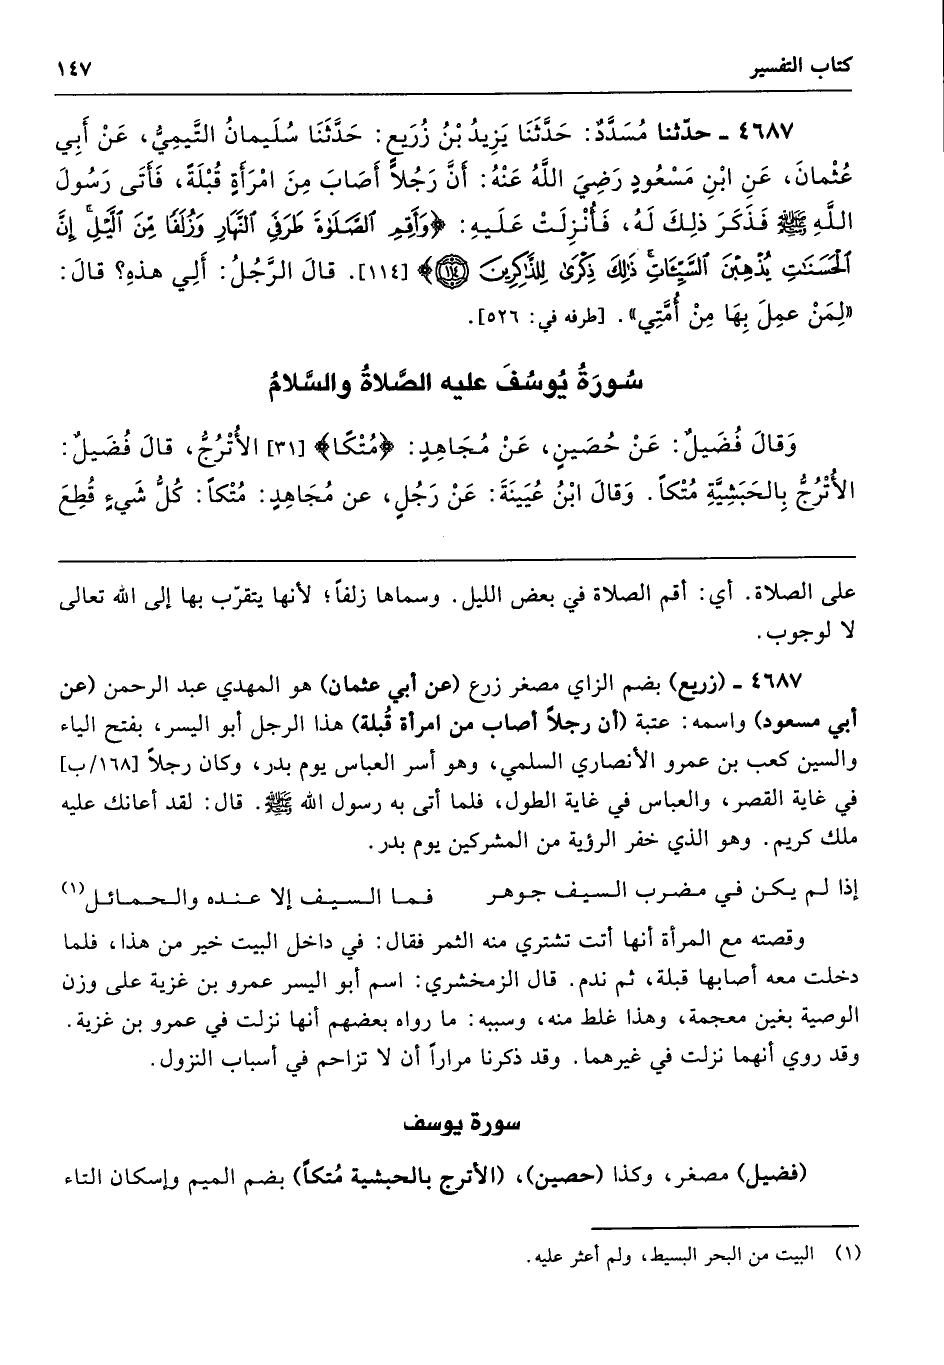 كتاب التفسير ١٤٧
٤٦٨٧ ـ حدّثنا مُسَدَّدٌ: حَدَّثَنَا يَزِيدُ بْنُ زُرَيعٍ: حَدَّثَنَا سُلَيمانُ التَّيمِيُّ، عَنْ أَبِي
عُثْمانَ، عَنِ ابْنِ مَسْعُودٍ رَضِيَ اللَّهُ عَنْهُ: أَنَّ رَجُلاً أَصَابَ مِنَ امْرَأَةٍ قُبْلَةً، فَأَتَى رَسُولَ
اللَّهِ ﷺ فَذَكَرَ ذلِكَ لَهُ، فَأُنْزِلَتْ عَلَيهِ: ﴿وَأَقِمِ ٱلصَّلَوٰةَ طَرَفَيِ ٱلنَّهَارِ وَزُلَفًا مِّنَ ٱلَّيْلِ ۚ إِنَّ
ٱلْحَسَنَٰتِ يُذْهِبْنَ ٱلسَّيِّـَٔاتِ ۚ ذَٰلِكَ ذِكْرَىٰ لِلذَّٰكِرِينَ ١١٤﴾ [١١٤]. قالَ الرَّجُلُ: أَلِي هذهِ؟ قالَ:
«لِمَنْ عمِلَ بِهَا مِنْ أُمَّتِي». [طرفه في: ٥٢٦].
سُورَةُ يُوسُفَ عليه الصَّلاةُ والسَّلامُ
وَقالَ فُضَيلٌ: عَنْ حُصَينٍ، عَنْ مُجَاهِدٍ: ﴿مُتْكًا﴾ [٣١] الأُتْرُجُّ، قالَ فُضَيلٌ:
الأُتْرُجُّ بِالحَبَشِيَّةِ مُتْكاً. وَقالَ ابْنُ عُيَينَةَ: عَنْ رَجُلٍ، عن مُجَاهِدٍ: مُتْكاً: كُلُّ شَيءٍ قُطِعَ
على الصلاة. أي: أقم الصلاة في بعض الليل. وسماها زلفاً؛ لأنها يتقرّب بها إلى الله تعالى
لا لوجوب.
٤٦٨٧ ـ (زريع) بضم الزاي مصغر زرع (عن أبي عثمان) هو المهدي عبد الرحمن (عن
أبي مسعود) واسمه: عتبة (أن رجلاً أصاب من امرأة قُبلة) هذا الرجل أبو اليسر، بفتح الياء
والسين كعب بن عمرو الأنصاري السلمي، وهو أسر العباس يوم بدر، وكان رجلاً [١٦٨/ب]
في غاية القصر، والعباس في غاية الطول، فلما أتى به رسول الله ﷺ. قال: لقد أعانك عليه
ملك كريم. وهو الذي خفر الرؤية من المشركين يوم بدر.
إذا لم يكن في مضرب السيف جوهر فما السيف إلا عنده والحمائل(١)
وقصته مع المرأة أنها أتت تشتري منه الثمر فقال: في داخل البيت خير من هذا، فلما
دخلت معه أصابها قبلة، ثم ندم. قال الزمخشري: اسم أبو اليسر عمرو بن غزية على وزن
الوصية بغين معجمة، وهذا غلط منه، وسببه: ما رواه بعضهم أنها نزلت في عمرو بن غزية.
وقد روي أنهما نزلت في غيرهما. وقد ذكرنا مراراً أن لا تزاحم في أسباب النزول.
سورة يوسف
(فضيل) مصغر، وكذا (حصين)، (الأترج بالحبشية مُتكاً) بضم الميم وإسكان التاء
(١) البيت من البحر البسيط، ولم أعثر عليه.